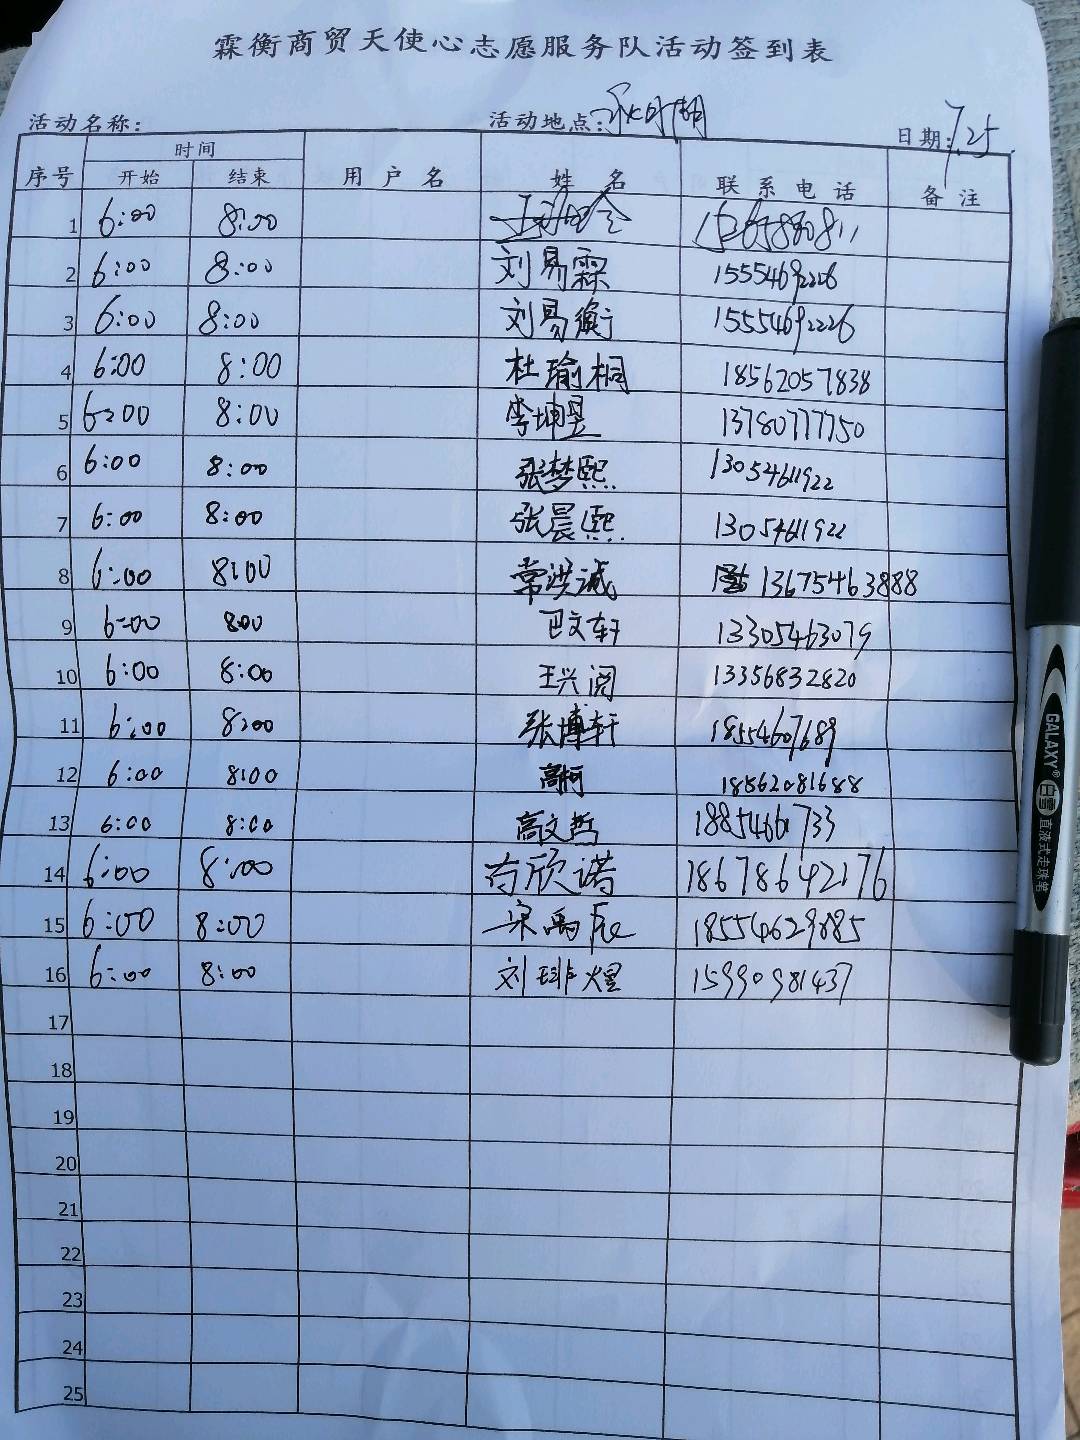 霖衡商贸天使心志愿服务队活动签到表
活动名称: 活动地点: 日期: 7.25
序号 时间 用户名 姓名 联系电话 备注
开始 结束
1 6:00 8:00
2 6:00 8:00 刘易霖 15554692226
3 6:00 8:00 刘易衡 15554692226
4 6:00 8:00 杜瑜桐 18562057838
5 6:00 8:00 李坤昱 13780777750
6 6:00 8:00 张梦熙 13054611922
7 6:00 8:00 张晨熙 13054611922
8 6:00 8:00 常洪诚 13675463888
9 6:00 8:00 巴文轩 13305463079
10 6:00 8:00 王兴阔 13356832820
11 6:00 8:00 张博轩 18554607689
12 6:00 8:00 高柯 18562081688
13 6:00 8:00 高文哲
14 6:00 8:00 欣诺 18678642176
15 6:00 8:00 18554629885
16 6:00 8:00 刘琲煜 15990981437
17
18
19
20
21
22
23
24
25
GALAXY®
白雪 直液式走珠笔